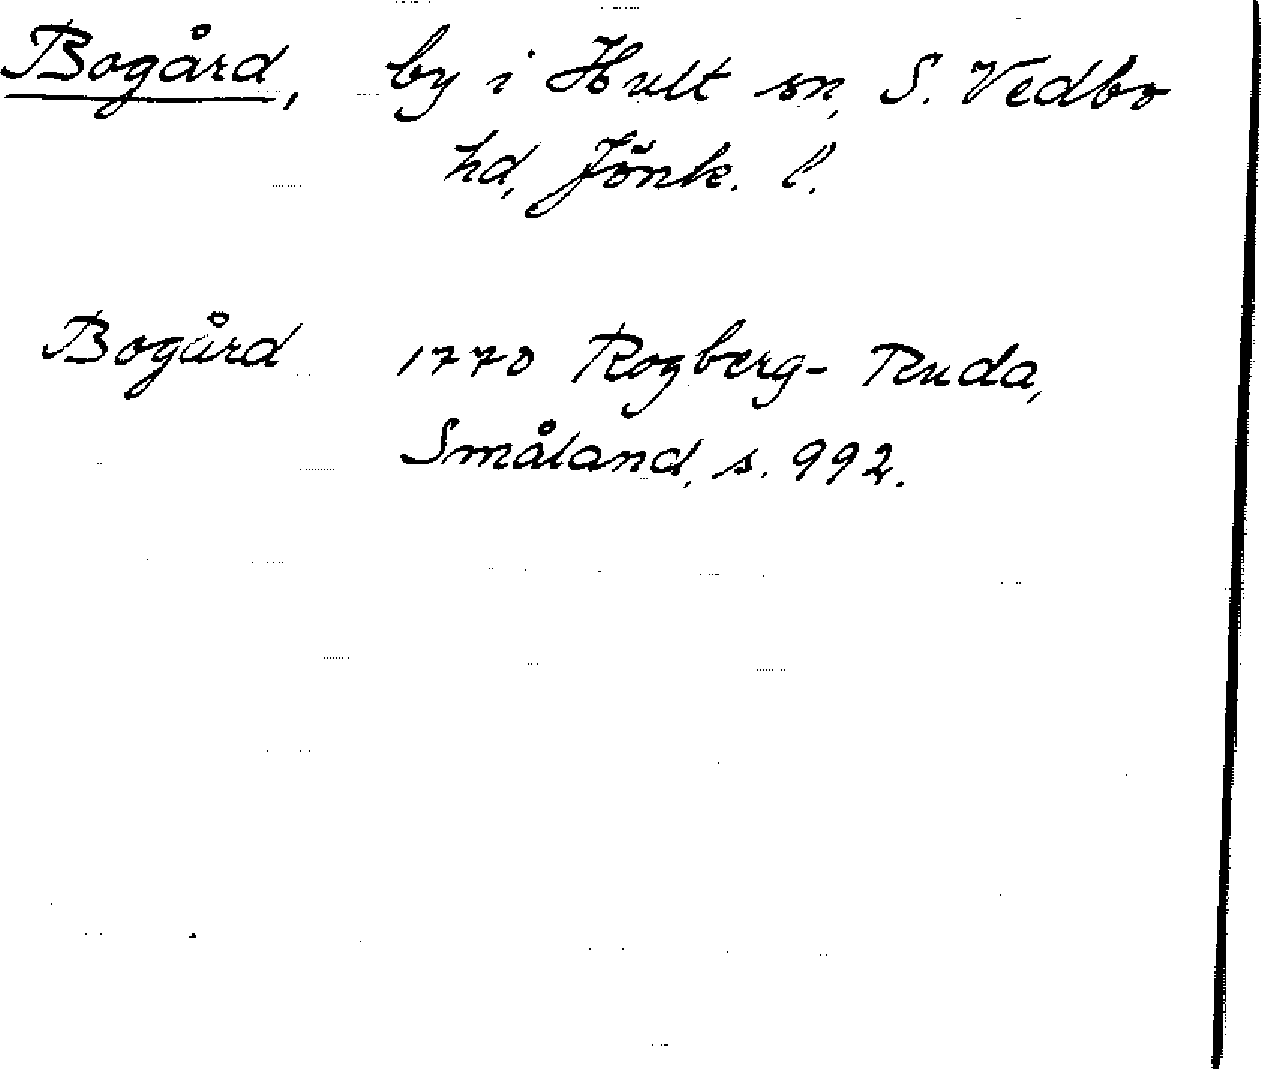 Bogård, by i Hult sn, S. Vedbo
hd, Jönk. l.
Bogård 1770 Rogberg-Ruda,
Småland, s. 992.